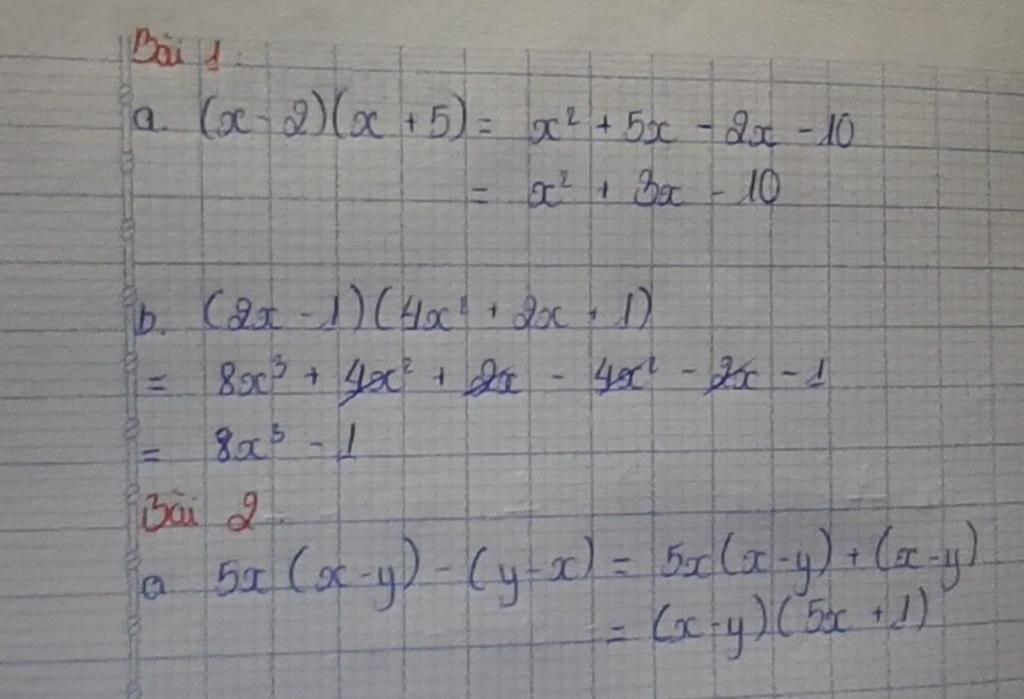 Bài 1.
a. (x - 2)(x + 5) = x² + 5x - 2x - 10
= x² + 3x - 10
b. (2x - 1)(4x² + 2x + 1)
= 8x³ + 4x² + 2x - 4x² - 2x - 1
= 8x³ - 1
Bài 2.
a 5x (x - y) - (y - x) = 5x(x - y) + (x - y)
= (x - y)(5x + 1)